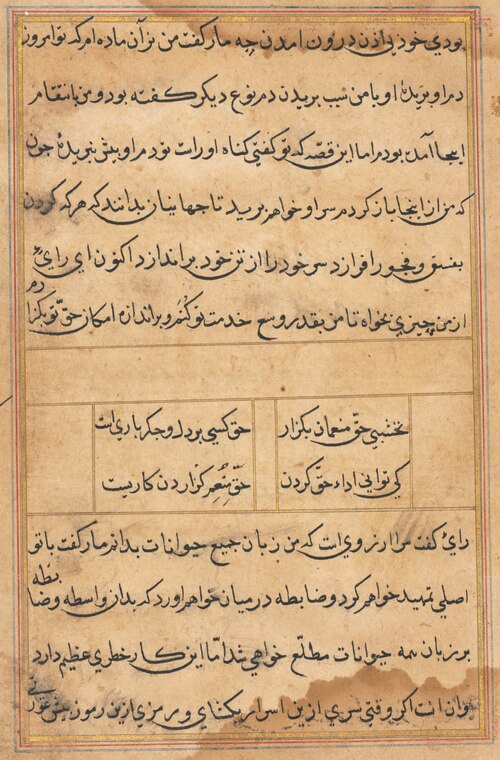 بودی خود بی اذن درون امدن چه مار کفت من بر آن ماده ام که تو امروز
دم او بریدهٔ او با من سبب بریدن دم نوع دیکر کفته بود و من بانتقام
اینجا آمده بودم اما این قصّه که تو کفتی کناه اوراست تو دم او بیش نبریدهٔ چون
که من از اینجا باز کردم سر او خواهم برید تا جهانیان بدانند که هر که کردن
بفسق و فجور افرازد سر خود را از تن خود براندازد اکنون ای رای
از من چیزی بخواه تا من بقدر وسع خدمت تو کنم و براندازه امکان حقّ تو بکزارم
نخشبی حقّ منعمان بکزار
حق کسی بر دل و جکر باریست
کی توانی اداء حقّ کردن
حقّ منعم کزاردن کاریست
رای کفت مرا ارزوی است که من زبان جمیع حیوانات بدانم مار کفت با تو
اصلی تمهید خواهم کرد و ضابطه در میان خواهم اورد که بدان واسطه و ضابطه
بر زبان همه حیوانات مطلع خواهی شد امّا این کار خطری عظیم دارد
وان انست اکر وقتی سری ازین اسرار بکشای و رمزی ازین رموز پیش